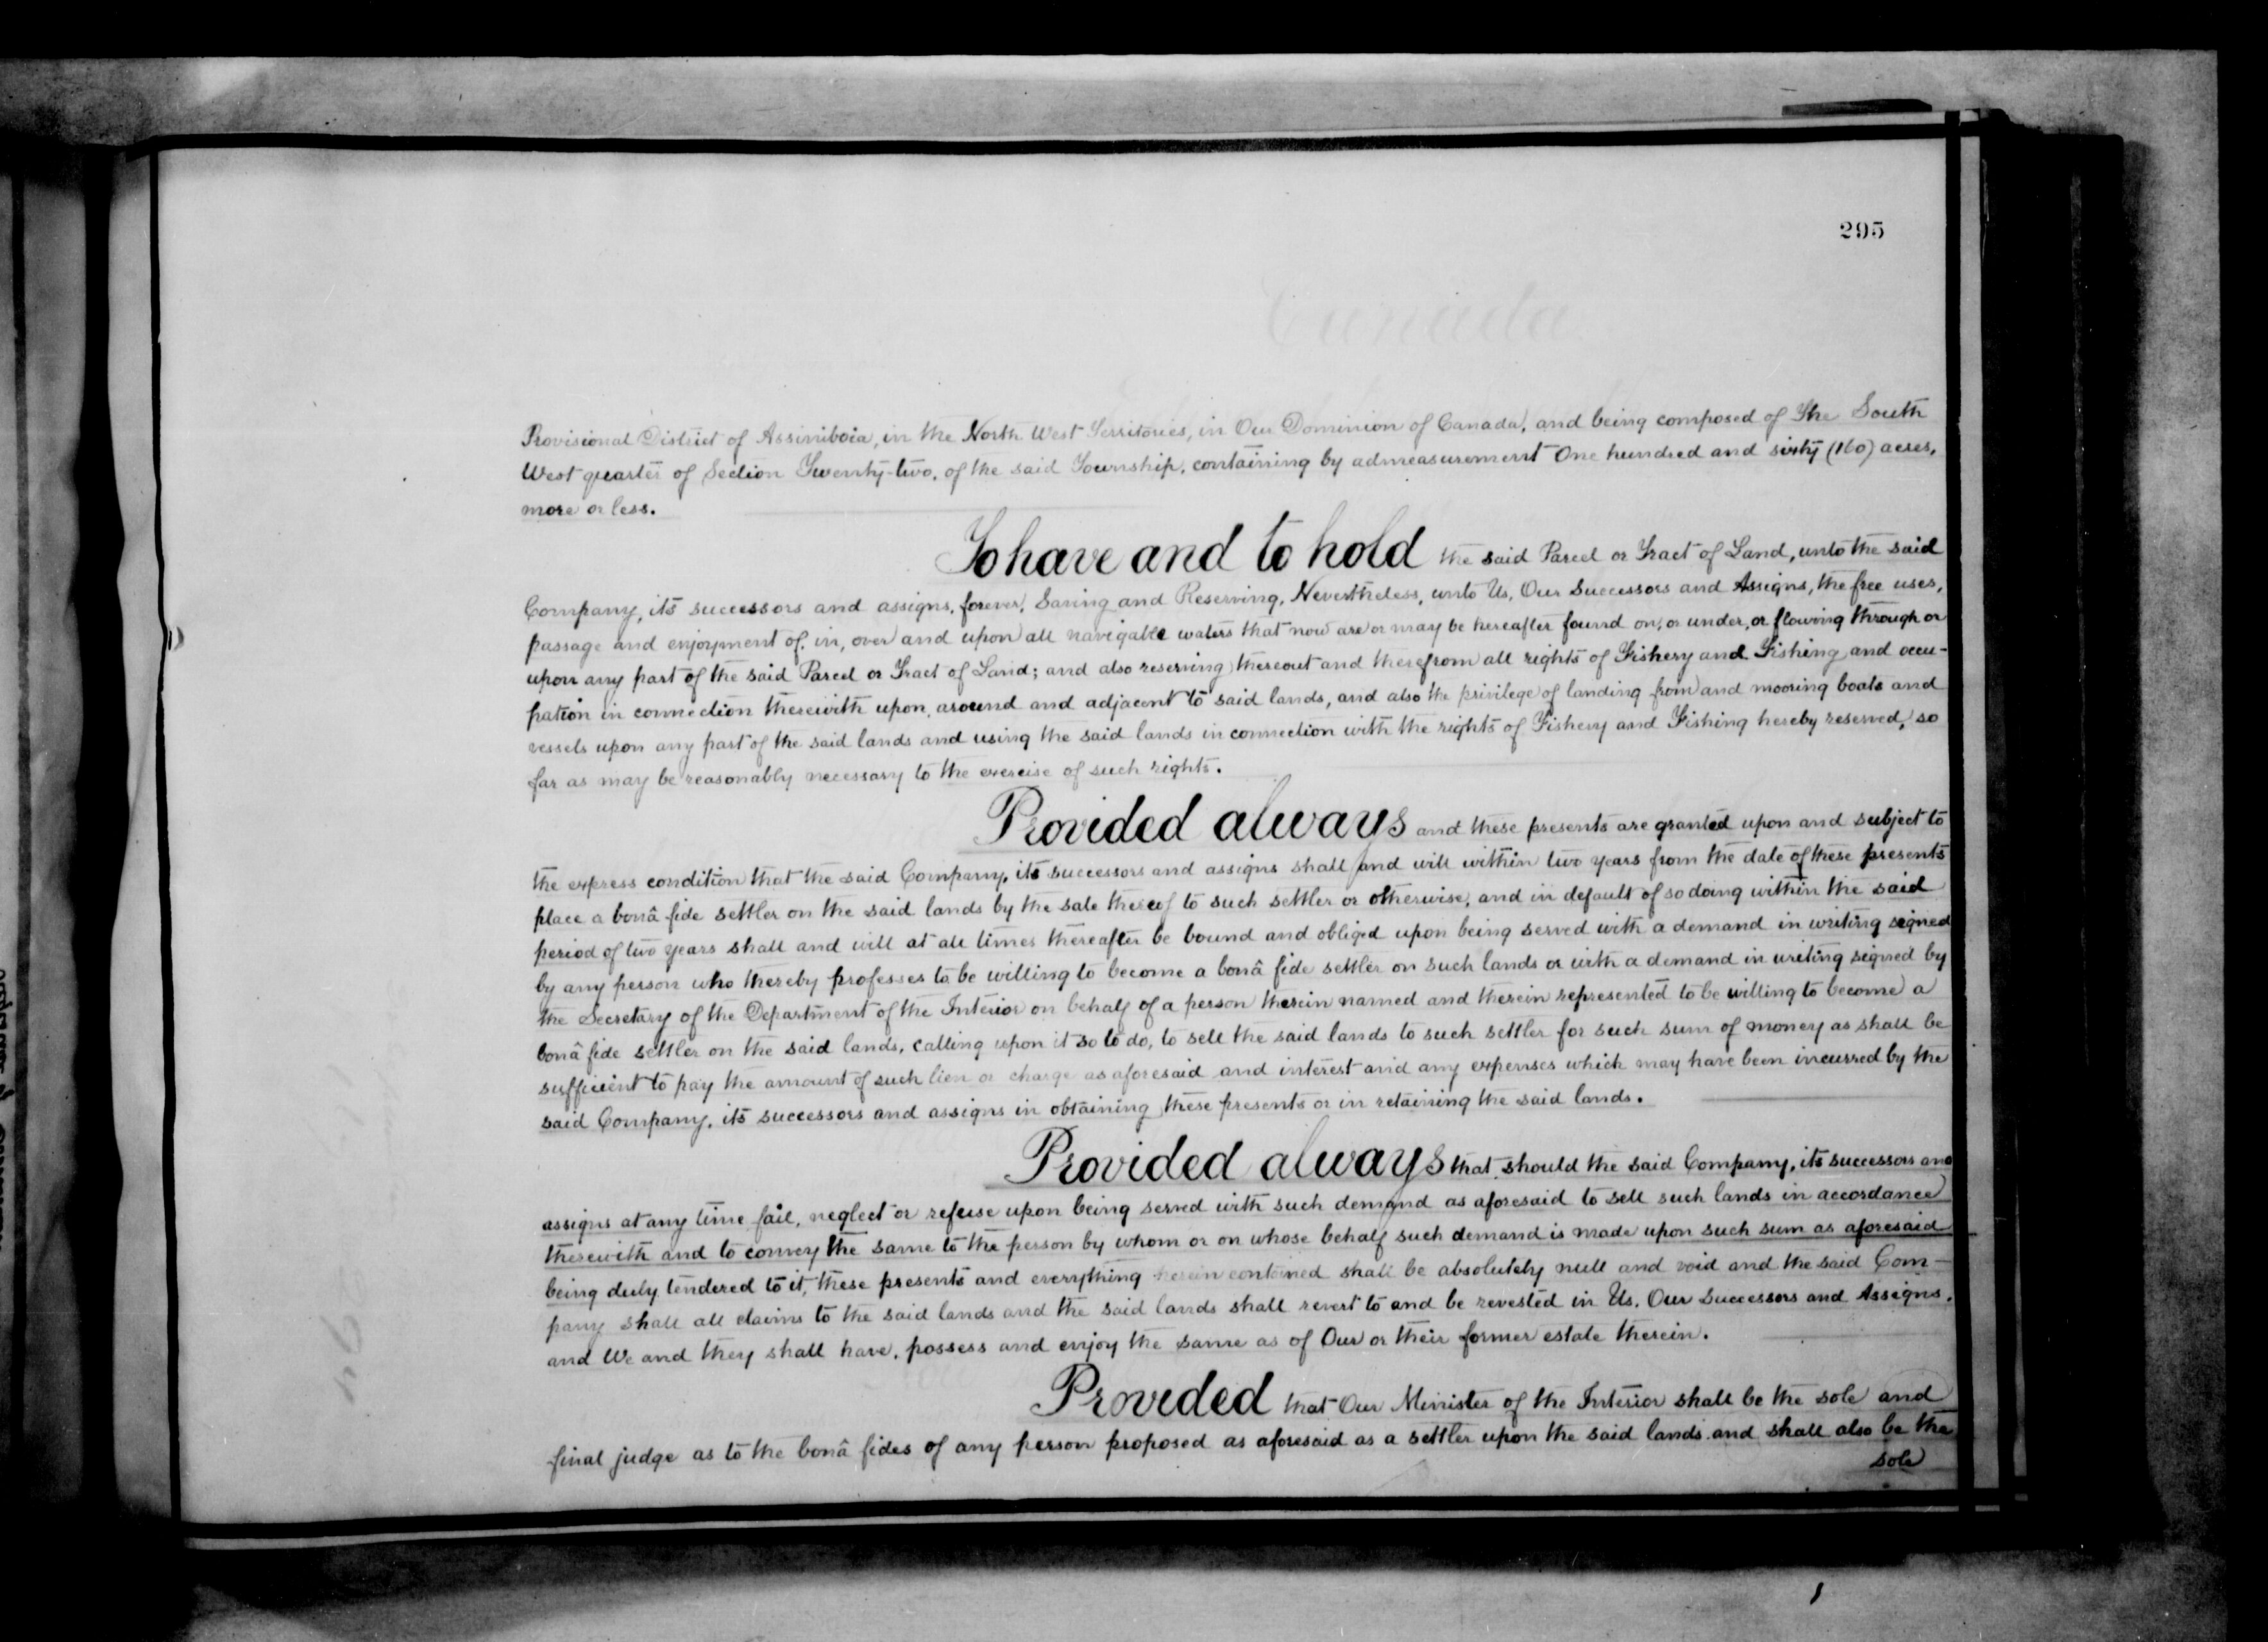 295
Provisional District of Assiniboia, in the North West Territories, in Our Dominion of Canada, and being composed of The South
West quarter of Section Twenty-two, of the said Township, containing by admeasurement One hundred and sixty (160) acres,
more or less.
To have and to hold the said Parcel or Tract of Land, unto the said
Company, its successors and assigns, forever, Saving and Reserving, Nevertheless, unto Us, Our Successors and Assigns, the free uses,
passage and enjoyment of, in, over and upon all navigable waters that now are or may be hereafter found on, or under, or flowing through or
upon any part of the said Parcel or Tract of Land; and also reserving thereout and therefrom all rights of Fishery and Fishing and occu-
pation in connection therewith upon, around and adjacent to said lands, and also the privilege of landing from and mooring boats and
vessels upon any part of the said lands and using the said lands in connection with the rights of Fishery and Fishing hereby reserved, so
far as may be reasonably necessary to the exercise of such rights.
Provided always and these presents are granted upon and subject to
the express condition that the said Company, its successors and assigns shall and will within two years from the date of these presents
place a bonâ fide settler on the said lands by the sale thereof to such settler or otherwise, and in default of so doing within the said
period of two years shall and will at all times thereafter be bound and obliged upon being served with a demand in writing signed
by any person who thereby professes to be willing to become a bonâ fide settler on such lands or with a demand in writing signed by
the Secretary of the Department of the Interior on behalf of a person therein named and therein represented to be willing to become a
bonâ fide settler on the said lands, calling upon it so to do, to sell the said lands to such settler for such sum of money as shall be
sufficient to pay the amount of such lien or charge as aforesaid and interest and any expenses which may have been incurred by the
said Company, its successors and assigns in obtaining these presents or in retaining the said lands.
Provided always that should the said Company, its successors and
assigns at any time fail, neglect or refuse upon being served with such demand as aforesaid to sell such lands in accordance
therewith and to convey the same to the person by whom or on whose behalf such demand is made upon such sum as aforesaid
being duly tendered to it, these presents and everything herein contained shall be absolutely null and void and the said Com-
pany shall all claims to the said lands and the said lands shall revert to and be revested in Us, Our Successors and Assigns,
and We and they shall have, possess and enjoy the same as of Our or their former estate therein.
Provided that Our Minister of the Interior shall be the sole and
final judge as to the bonâ fides of any person proposed as aforesaid as a settler upon the said lands and shall also be the
sole